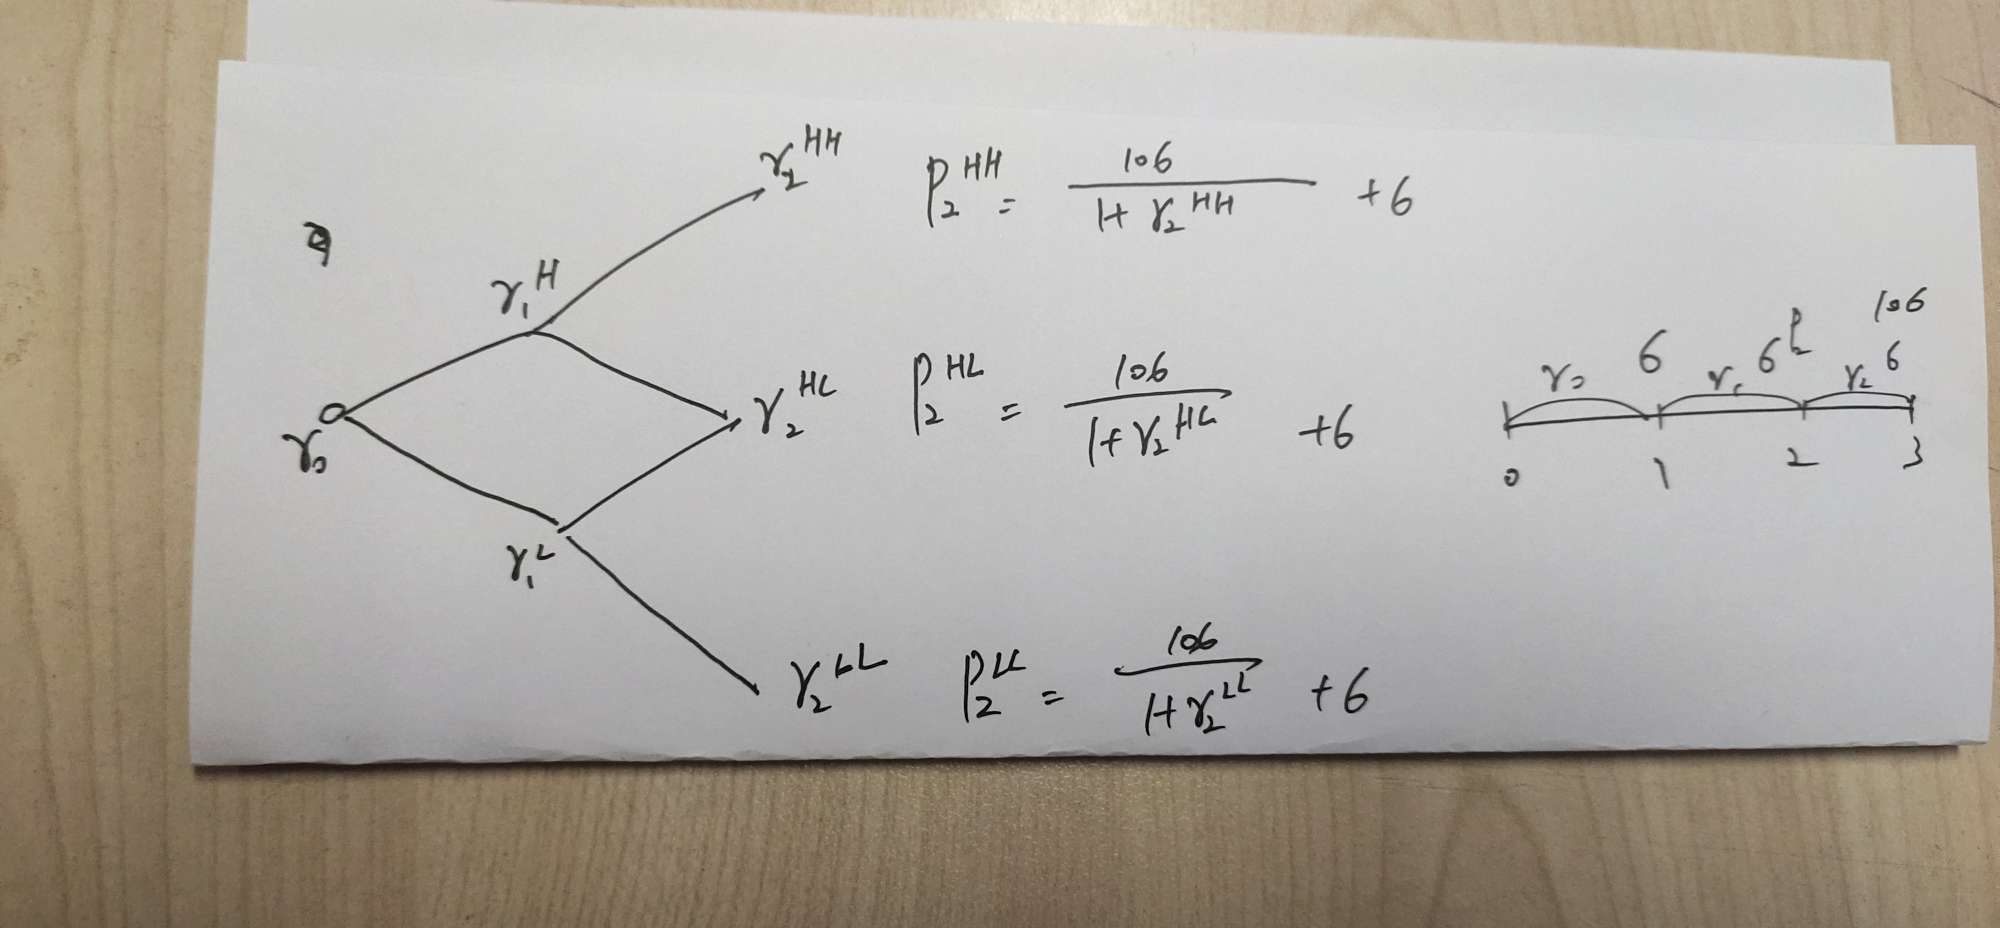 r₂^HH P₂^HH = 106 / (1+ r₂^HH) +6
r₁^H
r₀
r₂^HL P₂^HL = 106 / (1+ r₂^HL) +6
r₁^L
r₂^LL P₂^LL = 106 / (1+ r₂^LL) +6
106
6 6 P₂ 6
r₀ r₁ r₂
0 1 2 3